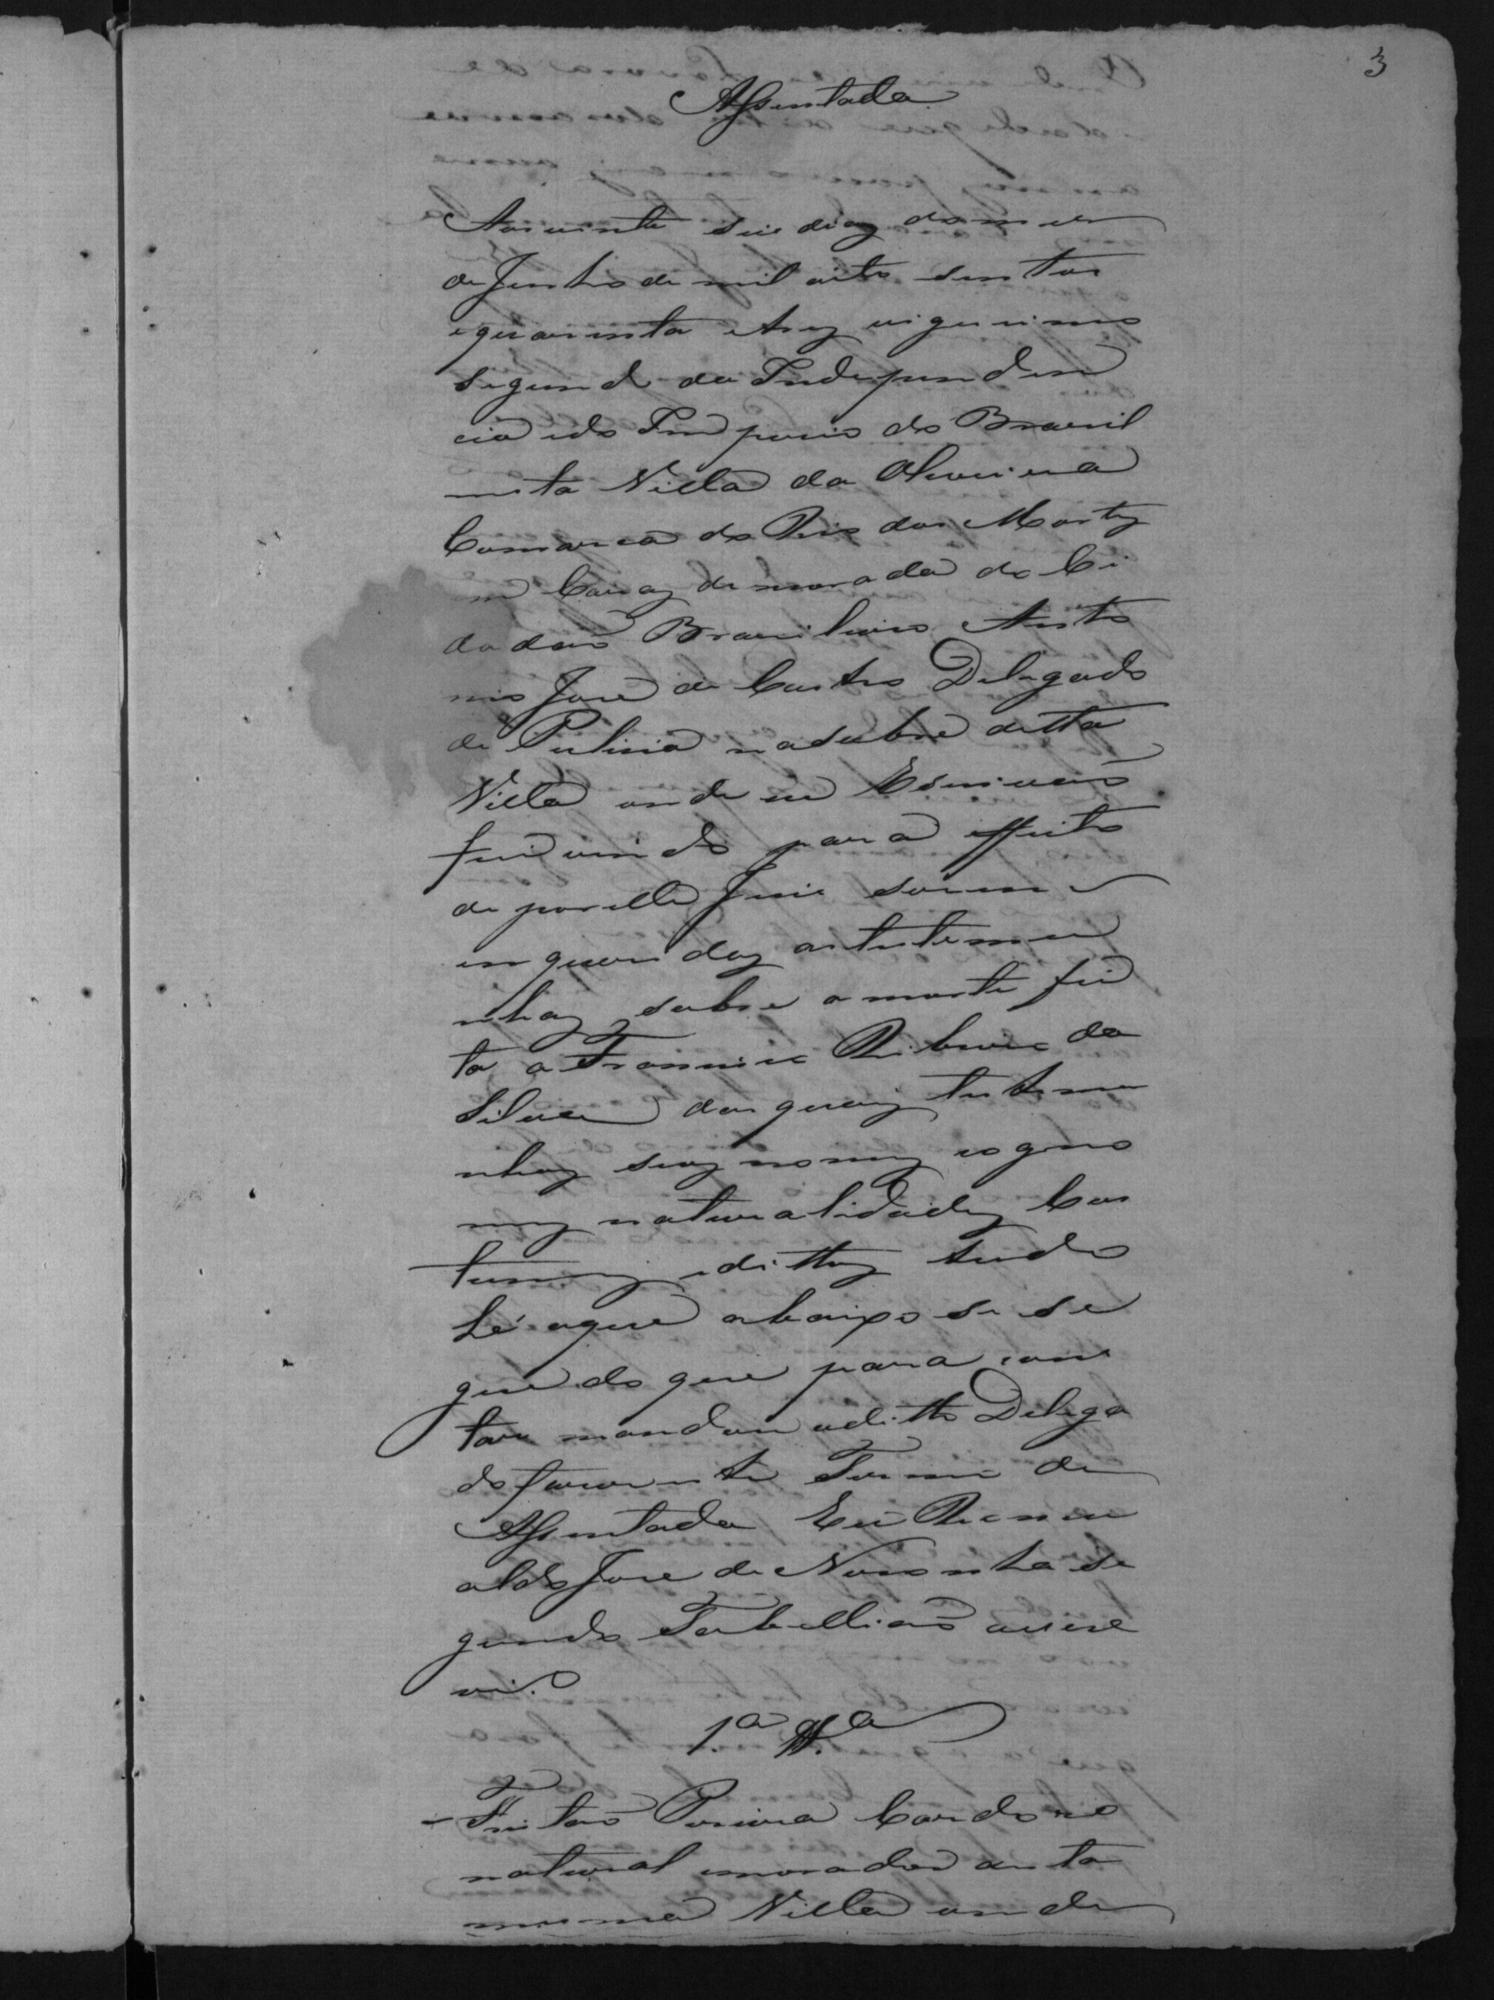 3
Assentada
Aos vinte seis dias do mes
de Junho de mil oito sentos
e quarenta e tres vigesimo
segundo da Independen
cia e do Imperio do Brazil
nesta Villa da Oliveira
Comarca do Rio das Mortes
em Cazas de morada do Ci
dadaõ Brazileiro Anto
nio Jose de Castro Delegado
de Pulicia na subre ditta
Villa onde eu Escrivaõ
fui vindo para effeito
de por elle Juis serem
inqueridas as testemu
nhas sobre a morte fei
ta a Francisco Ribeiro da
Silva das quais testemu
nhas seos nomes cogno
mes naturalidades Cos
tumes e dittos tudo
hé o que abaixo se se
gue do que para cons
tar mandou o ditto Delega
do faser este Termo de
Assentada Eu
aldo Jose de Noronha se
gundo Tabelliaõ escre
vi.
1.ª T.ª
Pereira Cardoso
natural e morador desta
mesma Villa onde